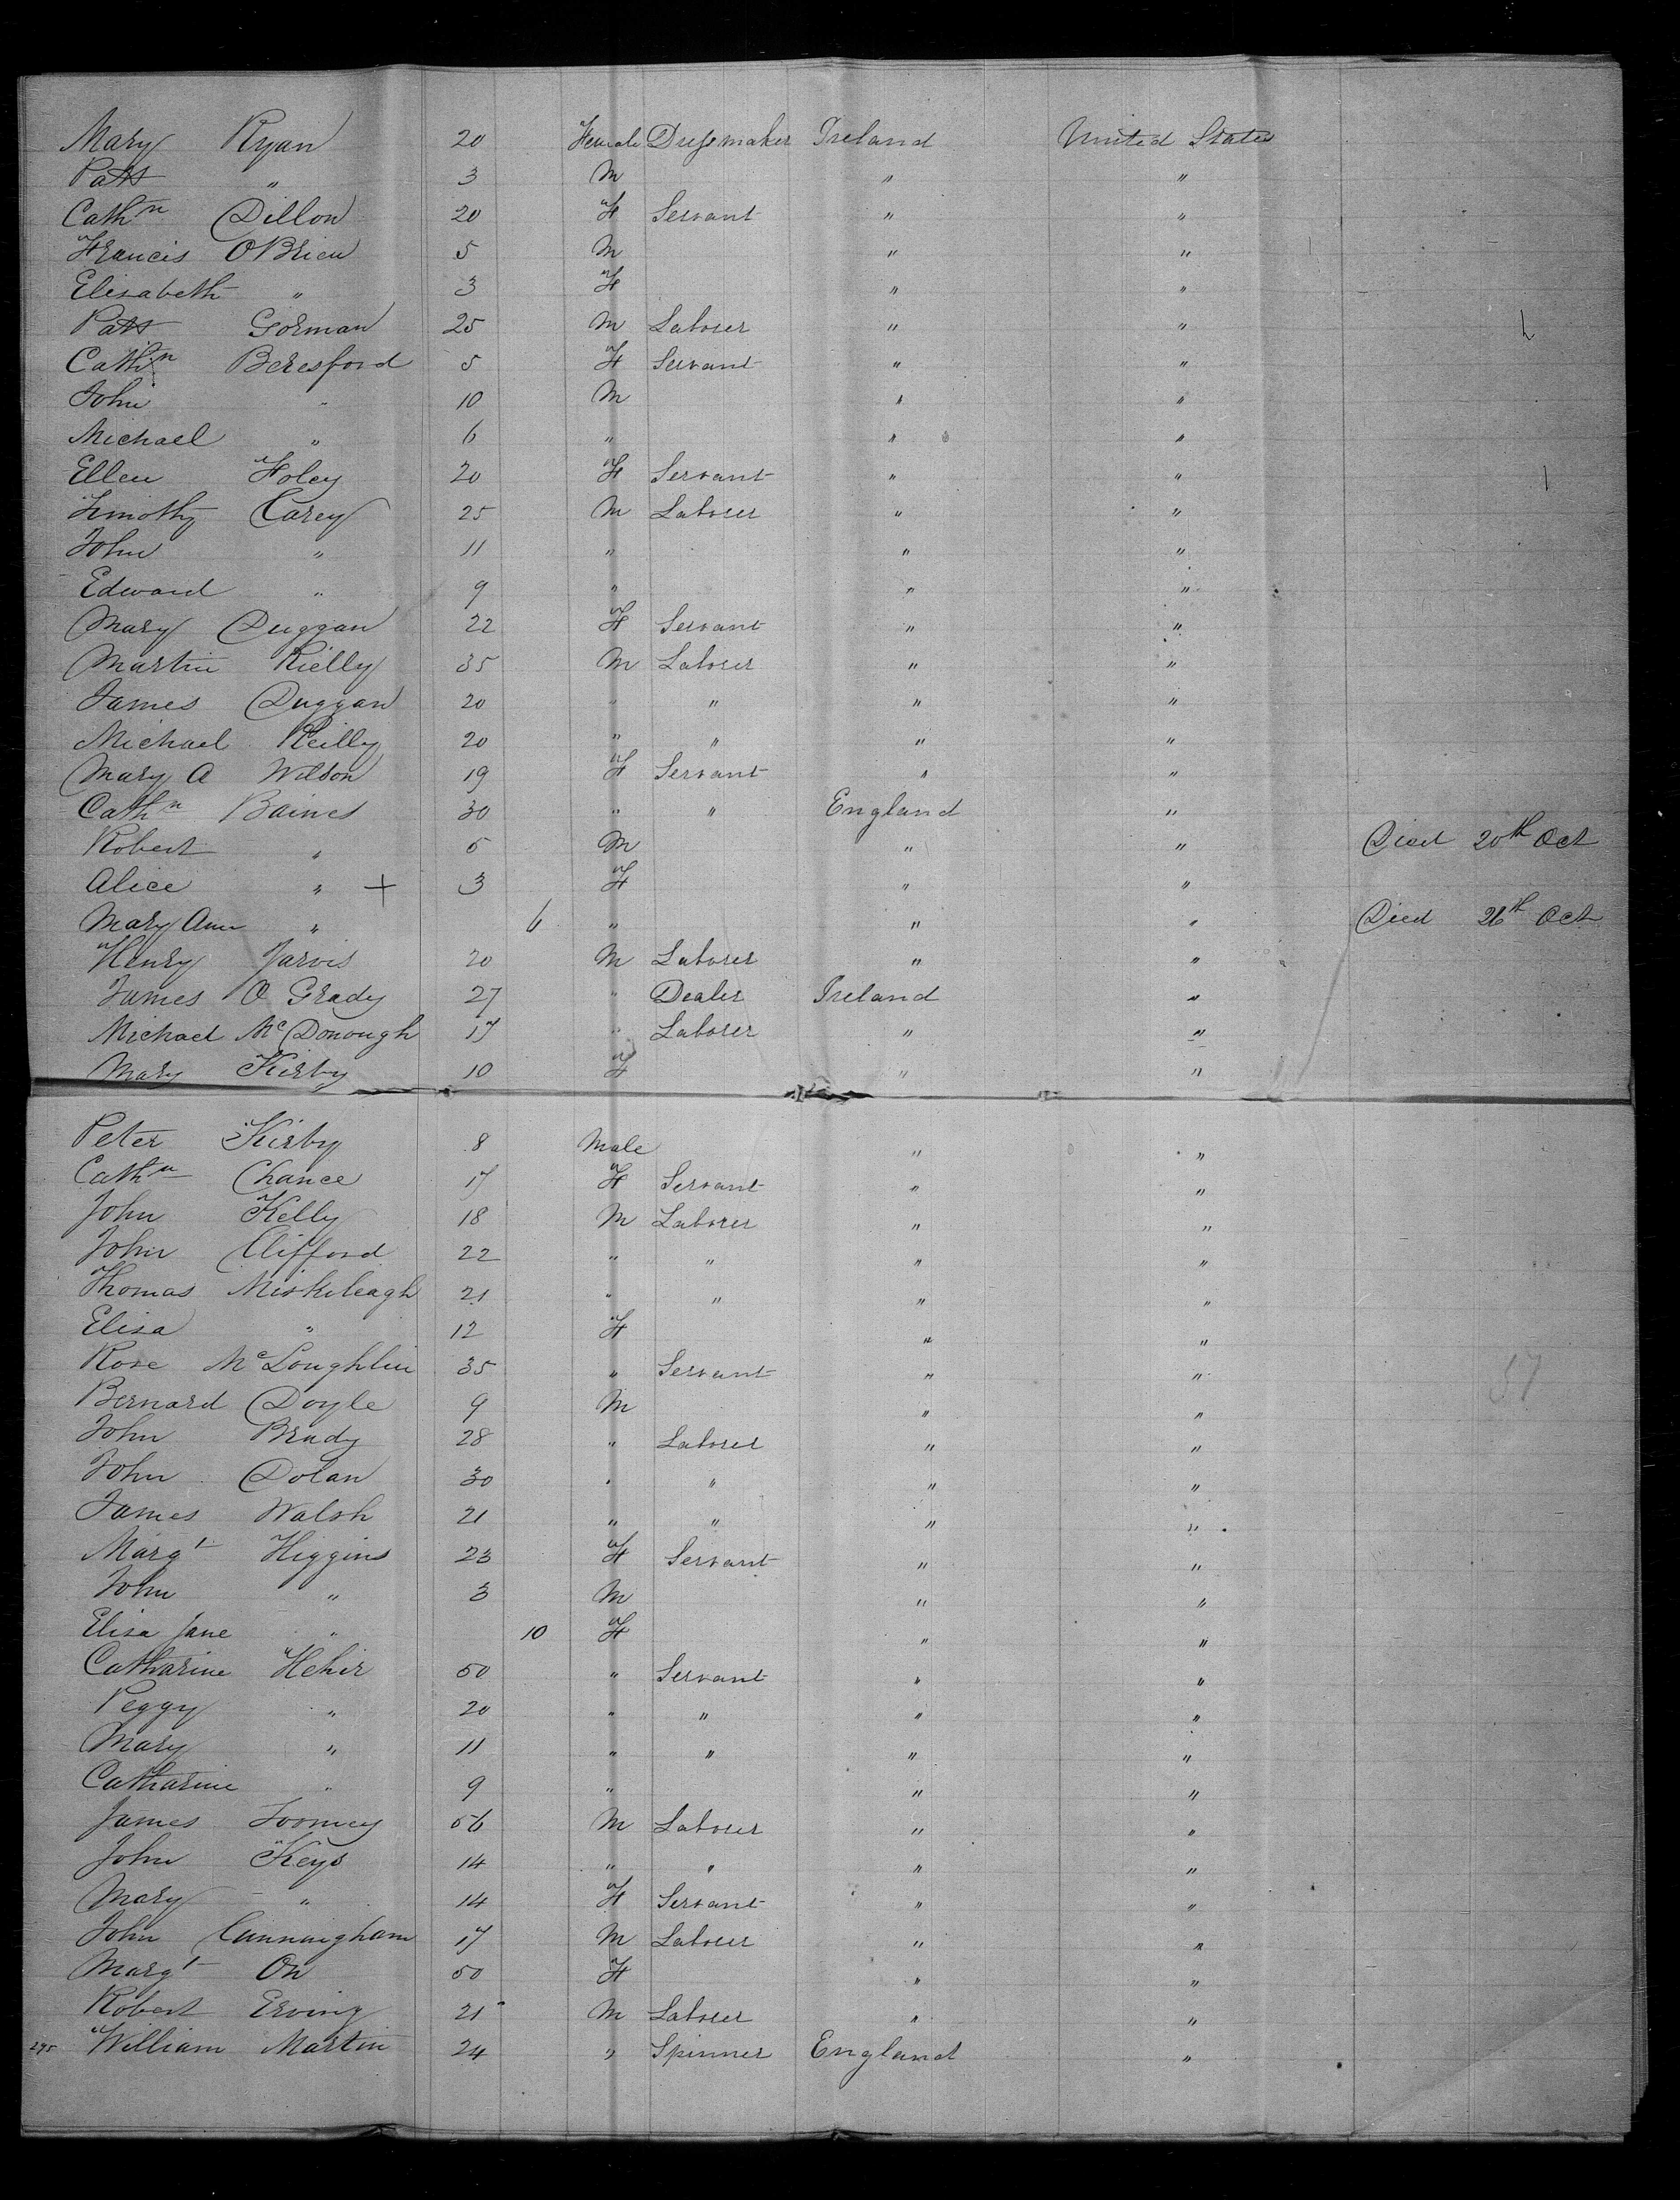 Mary Ryan 20 Female Dressmaker Ireland United States
Patk " 3 M " "
Cathn Dillon 20 F Servant " "
Francis OBrien 5 M " "
Elisabeth " 3 F " "
Patk Gorman 25 M Laborer " "
Cathn Beresford 5 F Servant " "
John " 10 M " "
Michael " 6 " " "
Ellen Foley 20 F Servant " "
Timothy Carey 25 M Laborer " "
John " 11 " " "
Edward " 9 " " "
Mary Duggan 22 F Servant " "
Martin Rielly 35 M Laborer " "
James Duggan 20 " " " "
Michael Reilly 20 " " " "
Mary A Wilson 19 F Servant " "
Cathn Baines 30 " " England "
Robert " 5 M " " Died 20th Oct
Alice " + 3 F " "
Mary Ann " 6 " " " Died 26th Oct
Henry Jarvis 20 M Laborer " "
James O Grady 27 " Dealer Ireland "
Michael McDonough 17 " Laborer " "
Mary Kirby 10 F " "
Peter Kirby 8 Male " "
Cathn Chance 17 F Servant " "
John Kelly 18 M Laborer " "
John Clifford 22 " " " "
Thomas Miskileagh 21 " " " "
Elisa " 12 F " "
Rose McLoughlin 35 " Servant " "
Bernard Doyle 9 M " "
John Brady 28 " Laborer " "
John Dolan 30 " " " "
James Walsh 21 " " " "
Margt Higgins 23 F Servant " "
John " 3 M " "
Elisa Jane " 10 F " "
Catharine Hehir 50 " Servant " "
Peggy " 20 " " " "
Mary " 11 " " " "
Catharine " 9 " " "
James Toomey 56 M Laborer " "
John Keys 14 " " " "
Mary " 14 F Servant " "
John Cunningham 17 M Laborer " "
Margt 50 F " "
Robert Erving 21 M Laborer " "
295 William Martin 24 " Spinner England "